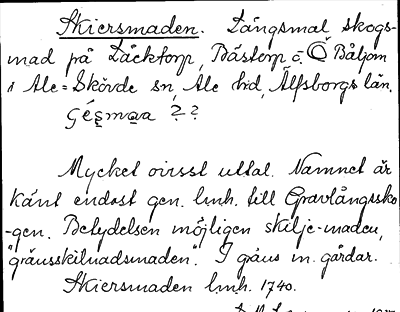 Skiersmaden. Långsmal skogs-
mad på Läcktorp, Båstorp o. Ö Båljom
i Ale-Skövde sn, Ale hd, Älfsborgs län.
? ?
Mycket ovisst uttal. Namnet är
känt endast gen. lmh. till Gravlångssko
-gen. Betydelsen möjligen skilje-maden,
"gränsskilnadsmaden". I gräns m. gårdar.
Skiersmaden lmh. 1740.